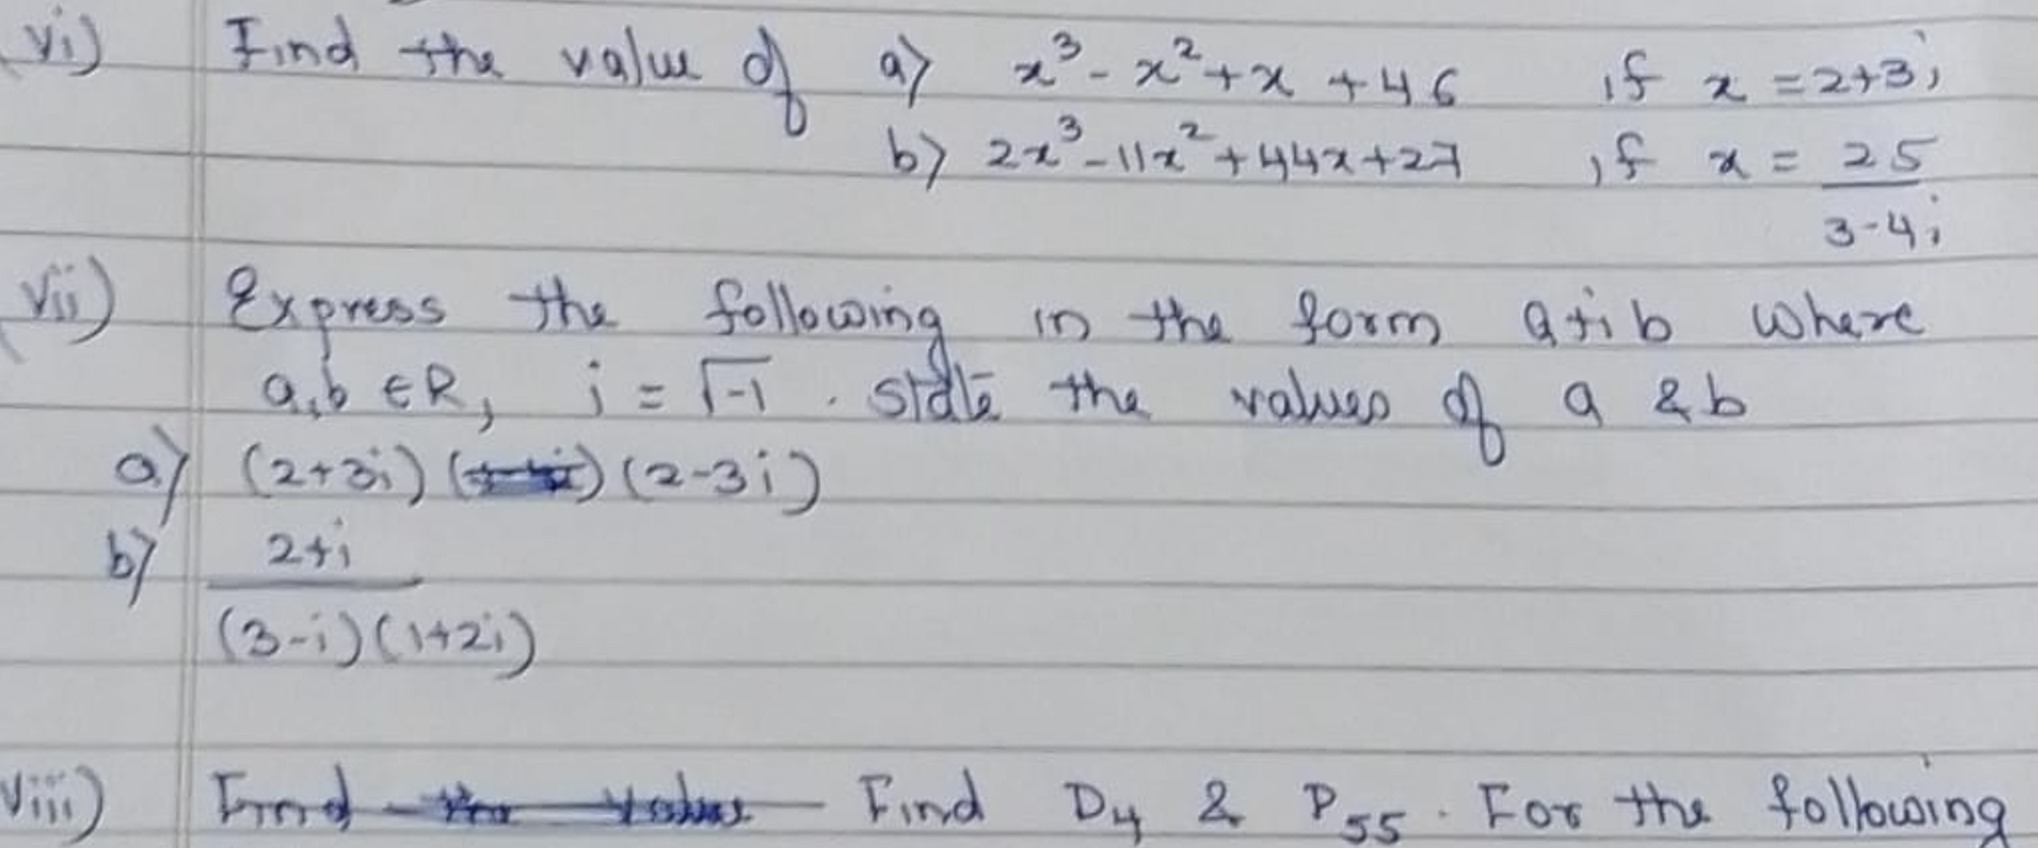 vi) Find the value of a) x³ - x² + x + 46 if x = 2+3i
b) 2x³ - 11x² + 44x + 27 if x = 25
3-4i
vii) Express the following in the form a+ib where
a,b ∈ R, i = √-1 . state the values of a & b
a) (2+3i) (2-3i)
b) 2+i
(3-i)(1+2i)
viii) Find the value Find D4 & P55. For the following